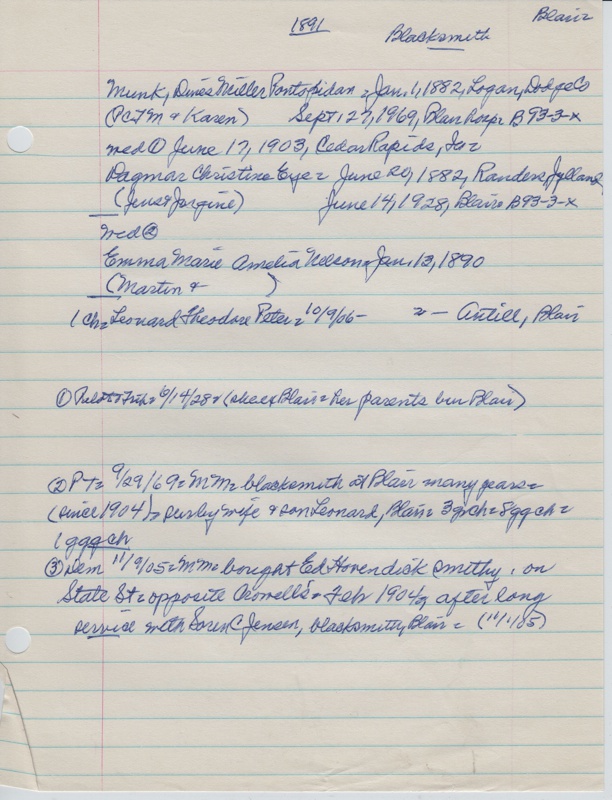 Blair
1891
Blacksmith
Munk, Dines Meisler Pontopidan = Jan. 1, 1882, Logan, Dodge Co
(P.C.T.M & Karen) Sept. 27, 1969, Blair hosp. B 93-3-x
med ① June 17, 1903, Cedar Rapids, Ia =
Dagmar Christine Eye = June 20, 1882, Randers, Jylland
(Jens & Jorgine) June 14, 1928, Blair B 93-3-x
med ②
Emma Marie Amelia Nelson = Jan. 13, 1890
(Martin & )
1 ch = Leonard Theodore Peter = 10/9/06 - Antill, Blair
① 6/14/28 = (she ex Blair = her parents bur Blair)
② PT = 9/29/69 = MM = blacksmith at Blair many years =
(since 1904) = sur by wife & son Leonard, Blair = 3 grch = 8 ggch =
1 gggch
③ Dem 11/9/05 = MM = bought Ed Hovendick smithy on
State St = opposite Crowell's = Feb 1904, after long
service with Soren C Jensen, blacksmith, Blair = (11/1/85)